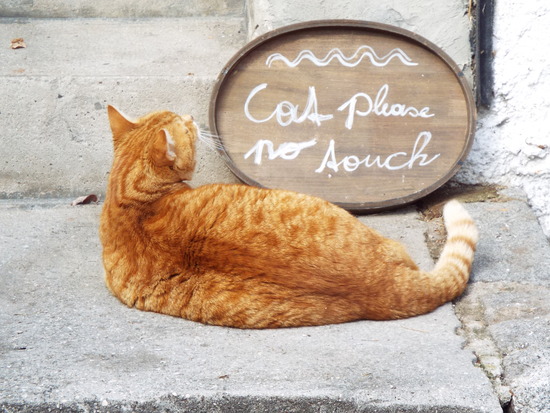 Cat please
no touch